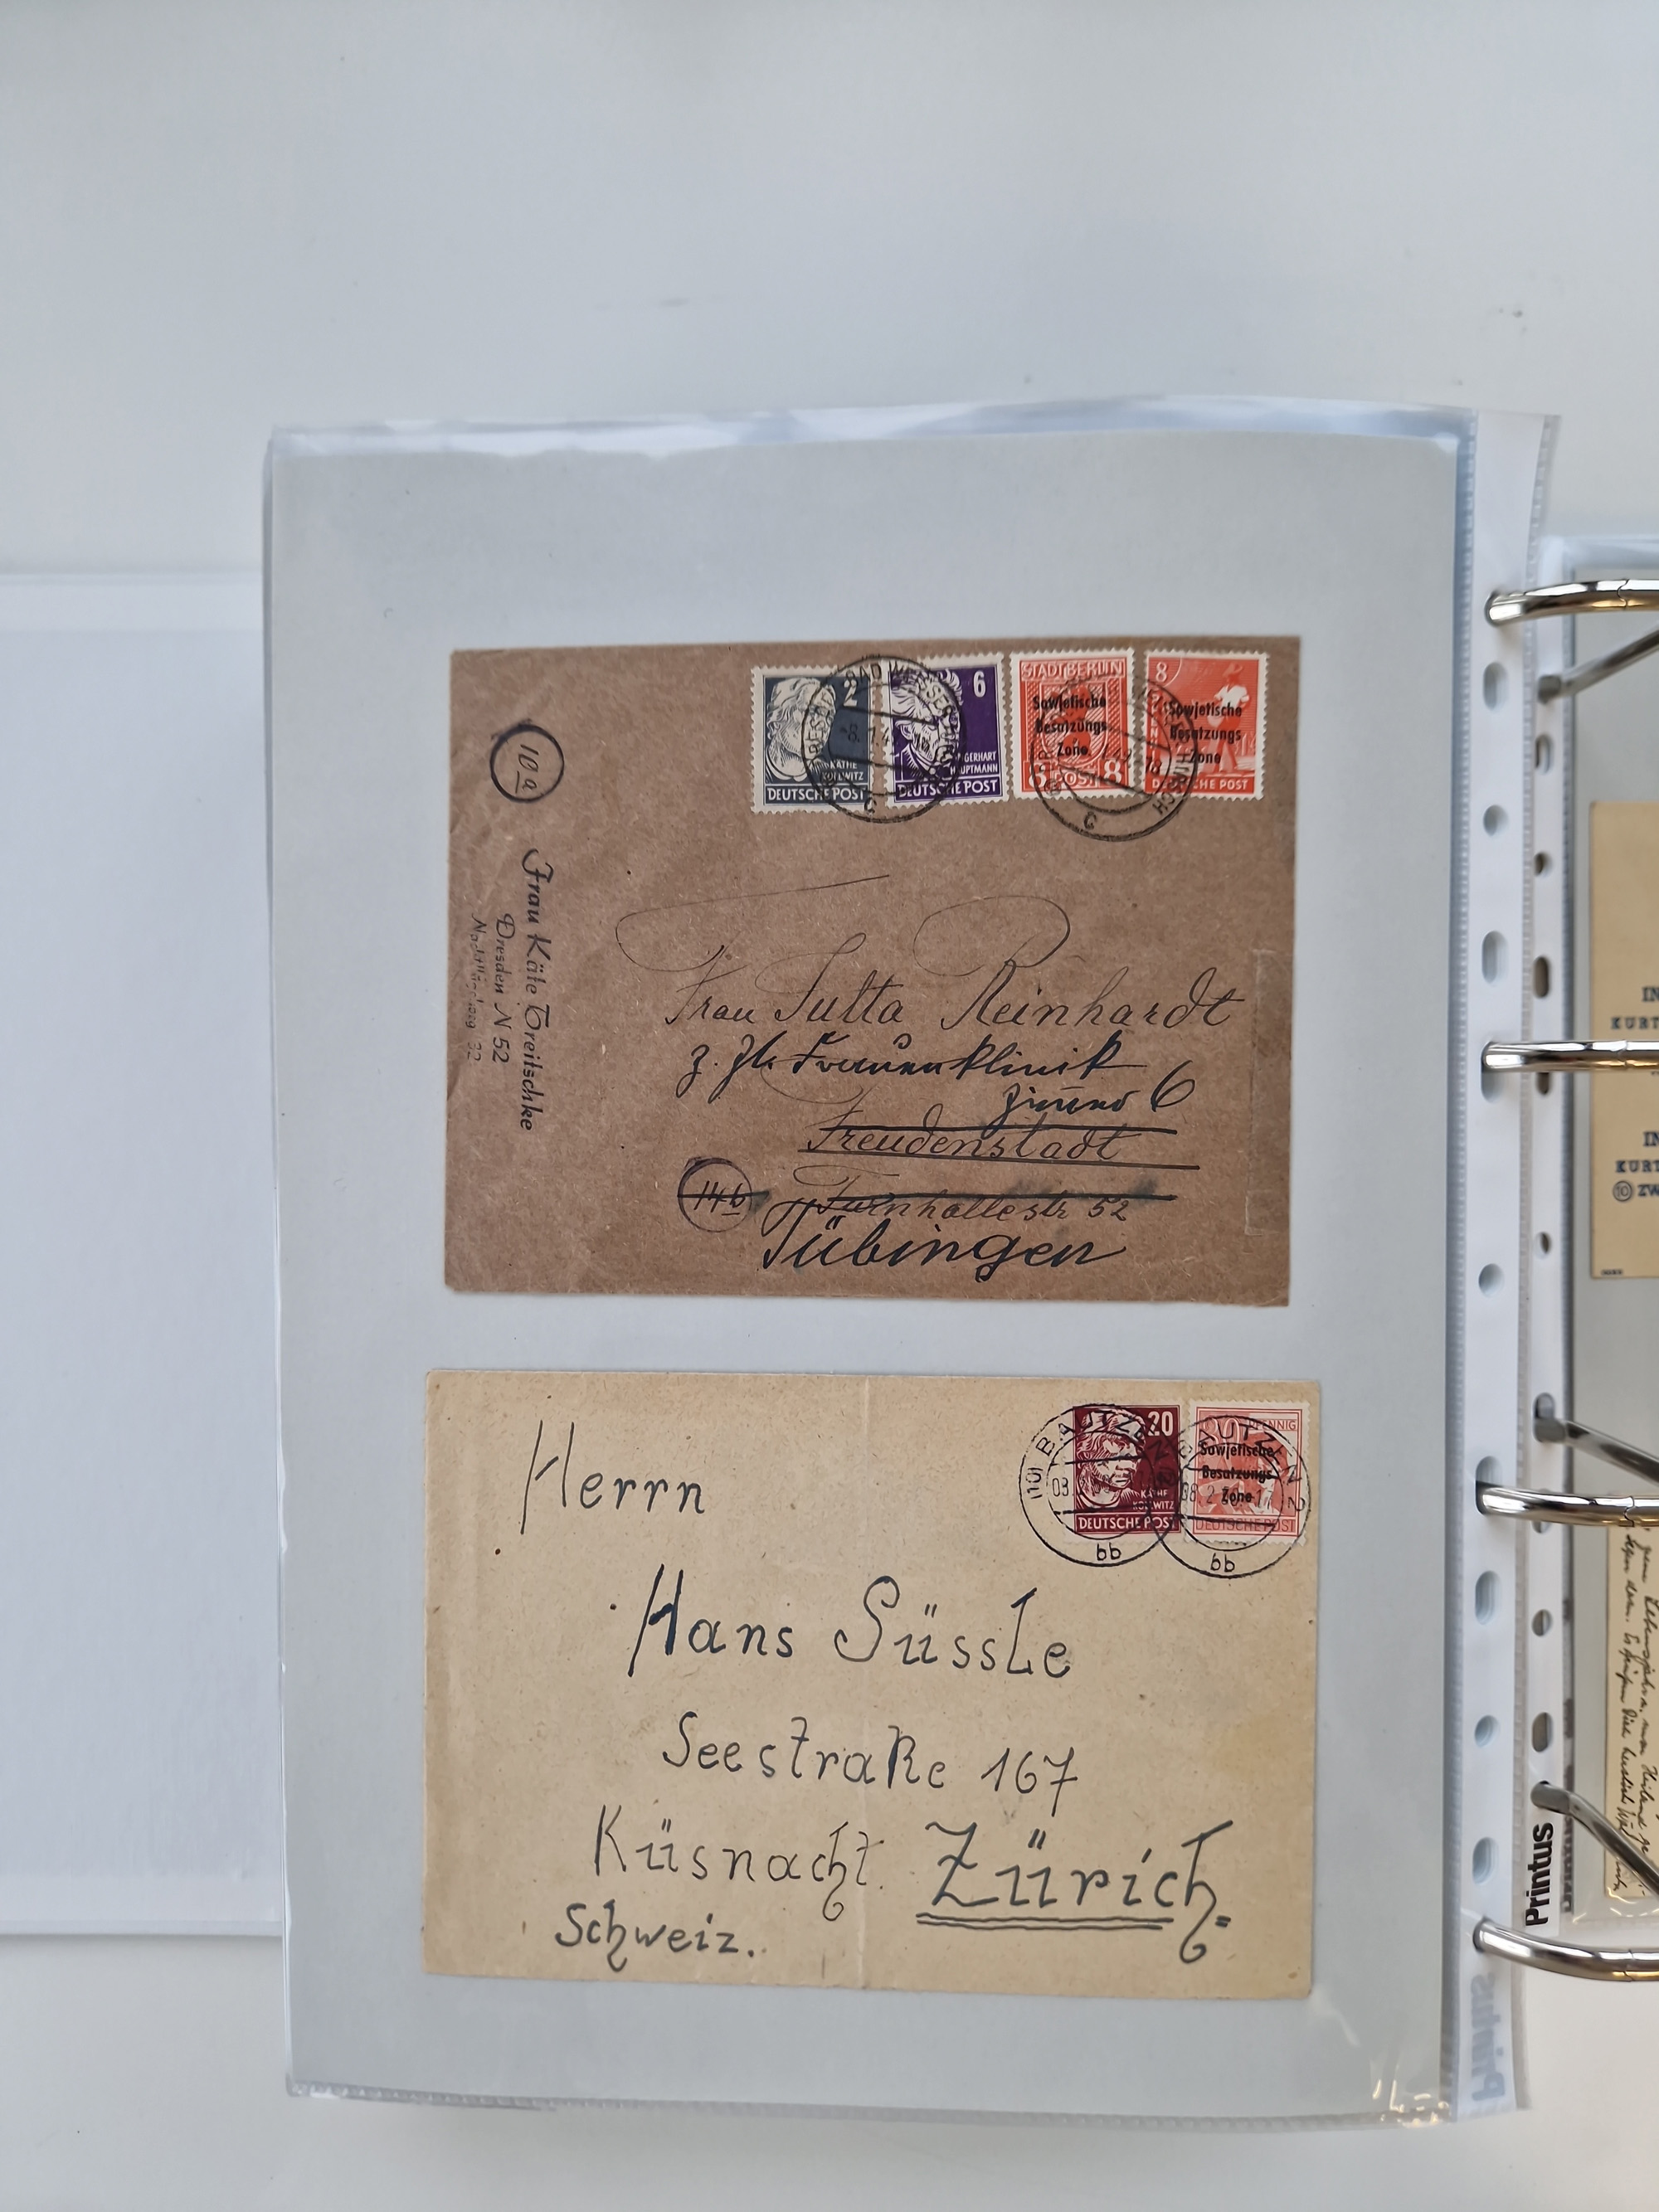 2
KÄTHE
KOLLWITZ
DEUTSCHE POST
6
GERHART
HAUPTMANN
DEUTSCHE POST
STADT BERLIN
Sowjetische
Besatzungs
Zone
POST 8
8
Sowjetische
Besatzungs
Zone
DEUTSCHE POST
C
C
10a
Frau Käte Treitschke
Dresden N 52
32
Frau Jutta Reinhardt
z. Zt. Frauenklinik
Zimmer 6
Freudenstadt
14b Turnhallestr 52
Tübingen
20
KÄTHE
KOLLWITZ
DEUTSCHE POST
PFENNIG
Sowjetische
Besatzungs
Zone
DEUTSCHE POST
(10) BAUTZEN 2
bb
BAUTZEN 2
bb
Herrn
Hans Süssle
Seestraße 167
Küsnacht. Zürich
Schweiz.
IN
KURT
IN
KURT
10 ZW
Printus